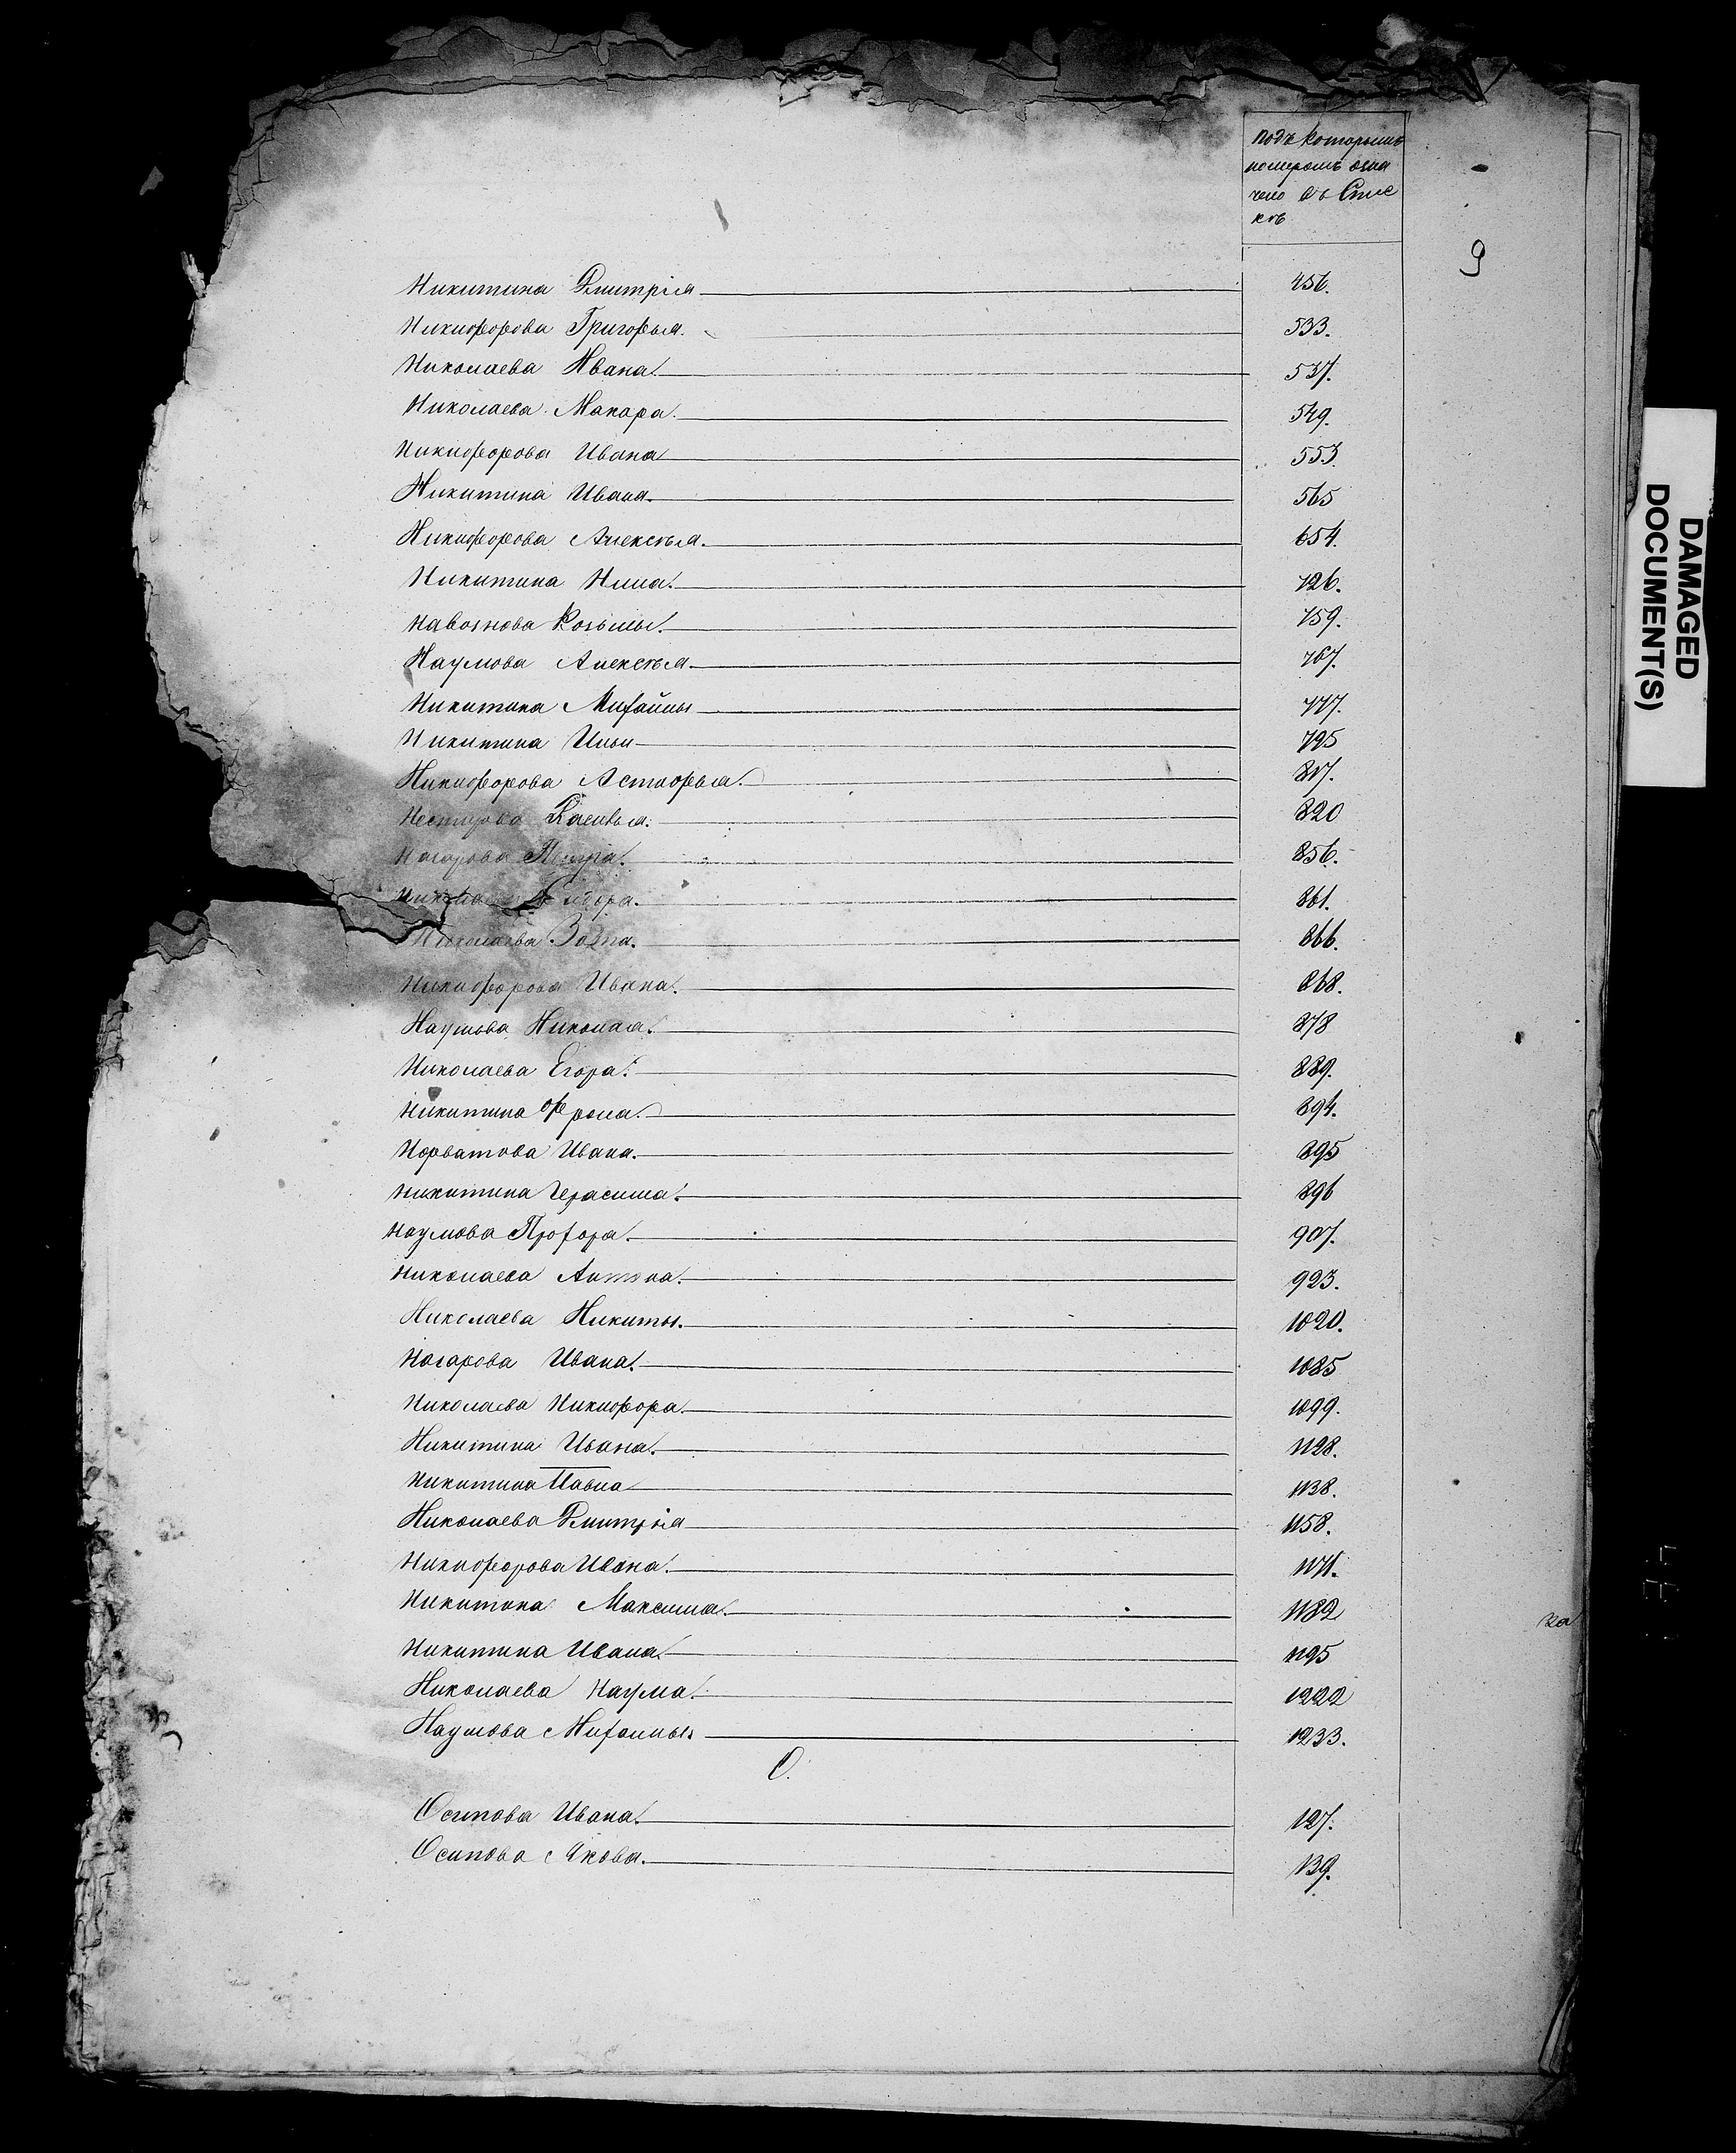 подъ которымъ
номеромъ озна
чено въ Спис
кѣ
9
Никитина Дмитрія 456.
Никифорова Григорья. 533.
Николаева Ивана. 537.
Николаева Макара. 549.
Никифорова Ивана 553.
Никитина Ивана. 565
Никифорова Алексѣя. 654.
Никитина Нила. 726.
Навознова Козьмы. 759.
Наумова Алексѣя. 767.
Никитина Михайлы 777.
Никитина Ильи 795
Никифорова Астафья. 817.
Нестерова Василья. 820
Назарова Петра. 856.
861.
Николаева 866.
Никифорова Ивана. 868.
Наумова Николая. 878
Николаева Егора. 889.
Никитина Фрола. 894.
Норватова Ивана. 895
Никитина Герасима. 896
Наумова Прохора. 907.
Николаева Антона. 923.
Николаева Никиты. 1020.
Назарова Ивана. 1085
Николаева Никифора. 1099.
Никитина Ивана. 1128.
Никитина Павла 1138.
Николаева Дмитрія 1158.
Никифорова Ивана. 1171.
Никитина Максима. 1182
Никитина Ивана. 1195
Николаева Наума. 1222
Наумова Михайлы. 1233.
О.
Осипова Ивана. 127.
Осипова Якова. 139.
DAMAGED
DOCUMENT(S)